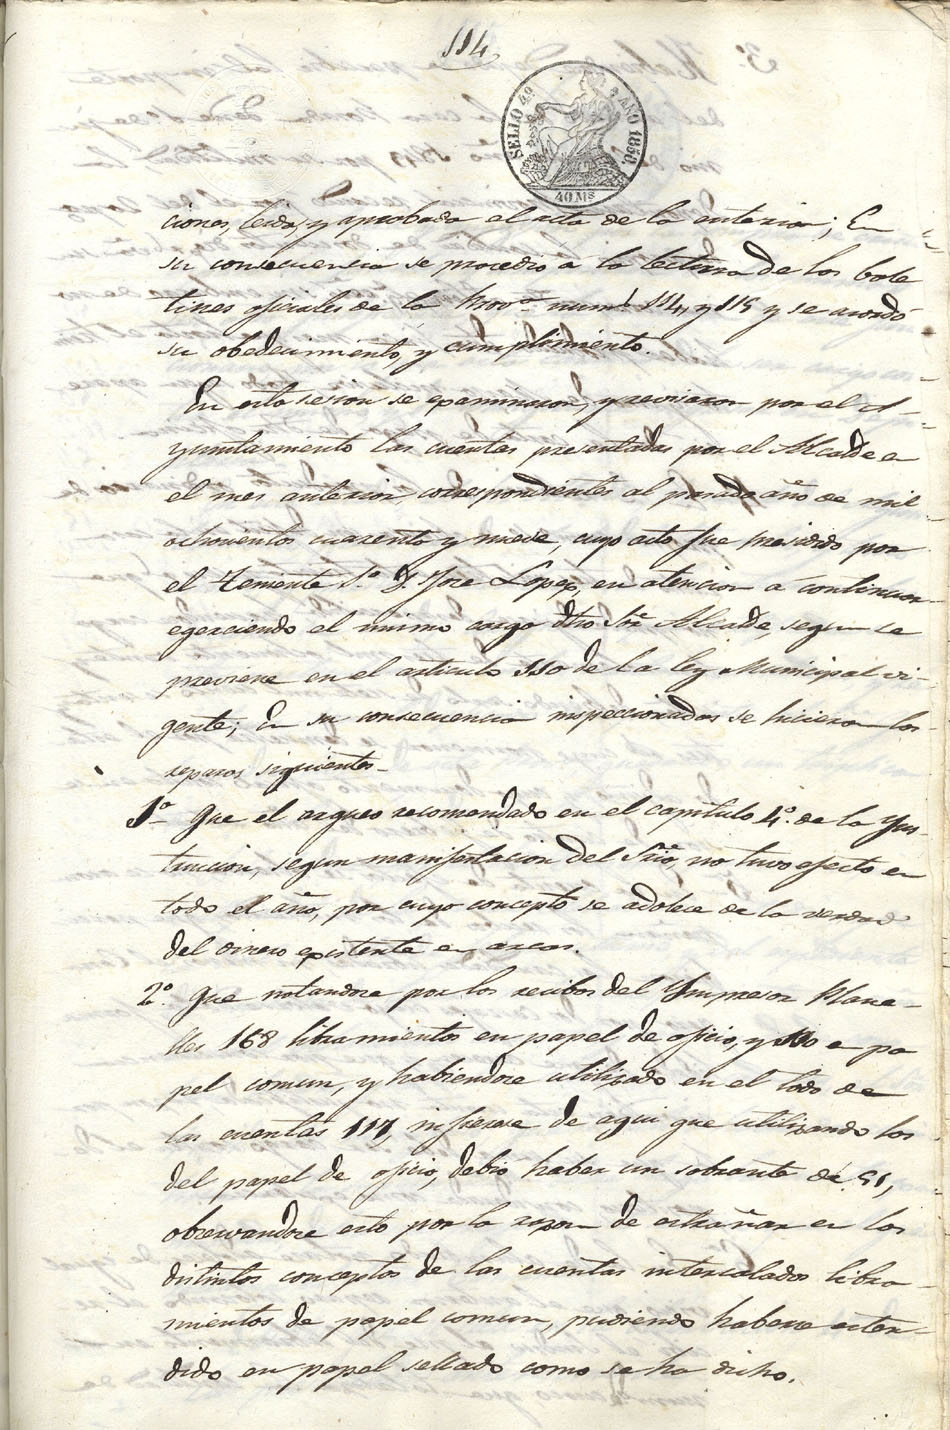 114
SELLO 4º AÑO 1850.
40 Ms
ciones, leida, y aprobada el acta de la anterior; En
su consecuencia se procedio a la lectura de los bole
tines oficiales de la Provª numˢ 114, y 115 y se acordó
su obedecimiento, y cumplimiento.
En esta sesion se examinaron, y revisaron por el A-
yuntamiento las cuentas presentadas por el Alcalde en
el mes anterior, correspondientes al pasado año de mil
ochocientos cuarenta y nueve, cuyo acto fue presidido por
el Teniente 1º D. Jose Lopez, en atencion a continuar
egerciendo el mismo cargo dho Sr. Alcalde, segun se
previene en el articulo 110 de la ley Municipal vi-
gente; En su consecuencia inspeccionadas se hicieron los
reparos siguientes-
1º Que el arqueo recomendado en el capitulo 4º. de la Yns-
truccion, segun manifestacion del Srio, no tuvo efecto en
todo el año, por cuyo concepto se adolece de la verdad
del dinero existente en arcas.
2º. Que notandose por los recibos del Ympresor
168 libramientos en papel de oficio, y en pa
pel comun, y habiendose utilizado en el todo de
las cuentas 117, infierese de aqui que utilizando los
del papel de oficio, debio haber un sobrante de 51,
observandose esto por la razon de estrañar en los
distintos conceptos de las cuentas intercalados libra-
mientos de papel comun, pudiendo haberse esten-
dido en papel sellado como se ha dicho.